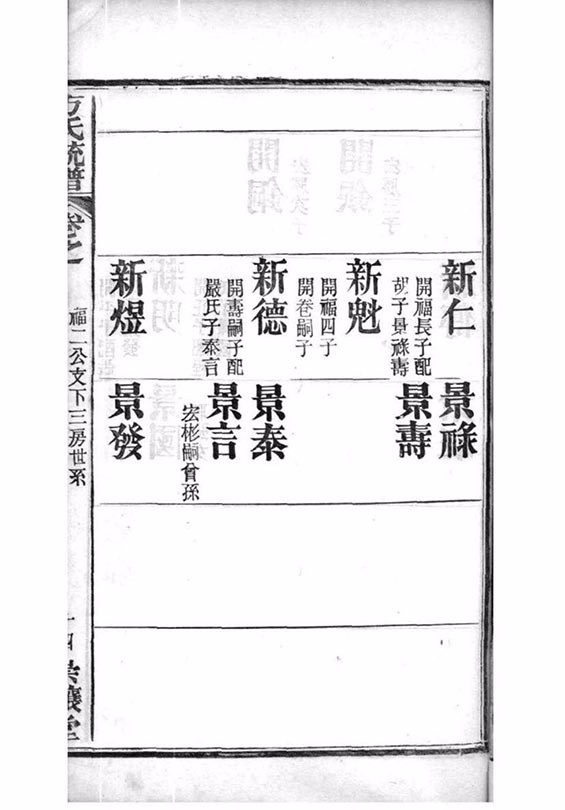 新仁
開福長子配
胡子景祿壽
新魁
開福四子
開卷嗣子
新德
開壽嗣子配
嚴氏子泰言
新煜
景祿
景壽
景泰
景言
宏彬嗣曾孫
景發
方氏統譜
卷之一
福二公支下三房世系
十四